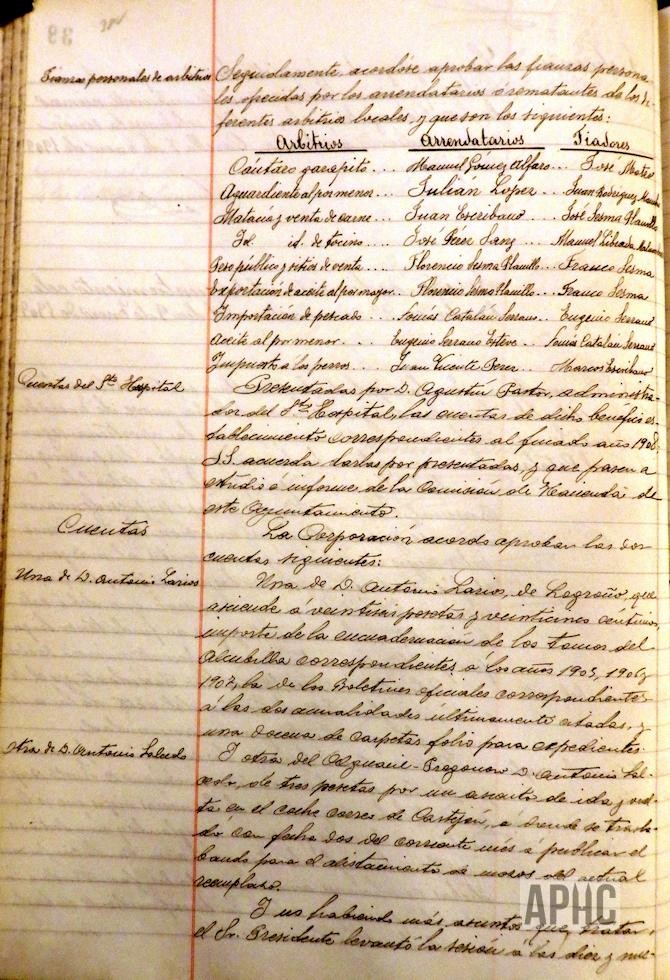 39
Fianzas personales de arbitrios
Seguidamente, acordóse aprobar las fianzas persona
les ofrecidas por los arrendatarios ó rematantes de los di-
ferentes arbitrios locales, y que son los siguientes:
Arbitrios Arrendatarios Fiadores
Cántaro garapito... Manuel Gomez Alfaro... José Mateo
Aguardiente al por menor... Julián Lopez... Juan Rodriguez
Matacía y venta de carne... Juan Escribano... José Sesma Planillo
Id. id. de tocino... José Pérez Sanz... Manuel Librada
Peso público y sitios de venta... Florencio Sesma Planillo... Franco Sesma
Exportación de aceite al por mayor... Florencio Sesma Planillo... Franco Sesma
Importación de pescado... Tomás Catalan Serrano... Eugenio Serrano
Aceite al por menor... Eugenio Serrano Esteve... Tomás Catalan Serrano
Impuesto á los perros... Juan Vicente Perez... Marcos Escribano
Cuentas del Sto Hospital
Presentadas por D. Agustín Pastor, administra-
dor del Sto Hospital, las cuentas de dicho benéfico es-
tablecimiento correspondientes al finado año 1908;
S.S. acuerda darlas por presentadas, y que pasen a
estudio é informe de la Comisión de Hacienda de
este Ayuntamiento.
Cuentas
La Corporación acordó aprobar las dos
cuentas siguientes:
Una de D. Antonio Larios
Una de D. Antonio Larios, de Logroño, que
asciende á veintiseis pesetas y veinticinco céntimos,
importe de la encuadernación de los tomos del
Alcubilla correspondientes á los años 1905, 1906 y
1907, la de los Boletines oficiales correspondientes
á las dos anualidades últimamente citadas, y
una docena de carpetas folio para expedientes.
Otra de D. Antonio Salcedo
Y otra del Alguacil-Pregonero D. Antonio Sal-
cedo, de tres pesetas por un asiento de ida y vuel-
ta en el coche correo de Castejon, á donde se trasla-
dó con fecha dos del corriente més á publicar el
bando para el alistamiento de mozos del actual
reemplazo.
Y no habiendo más asuntos que tratar,
el Sr. Presidente levantó la sesión a las diez y
APHC